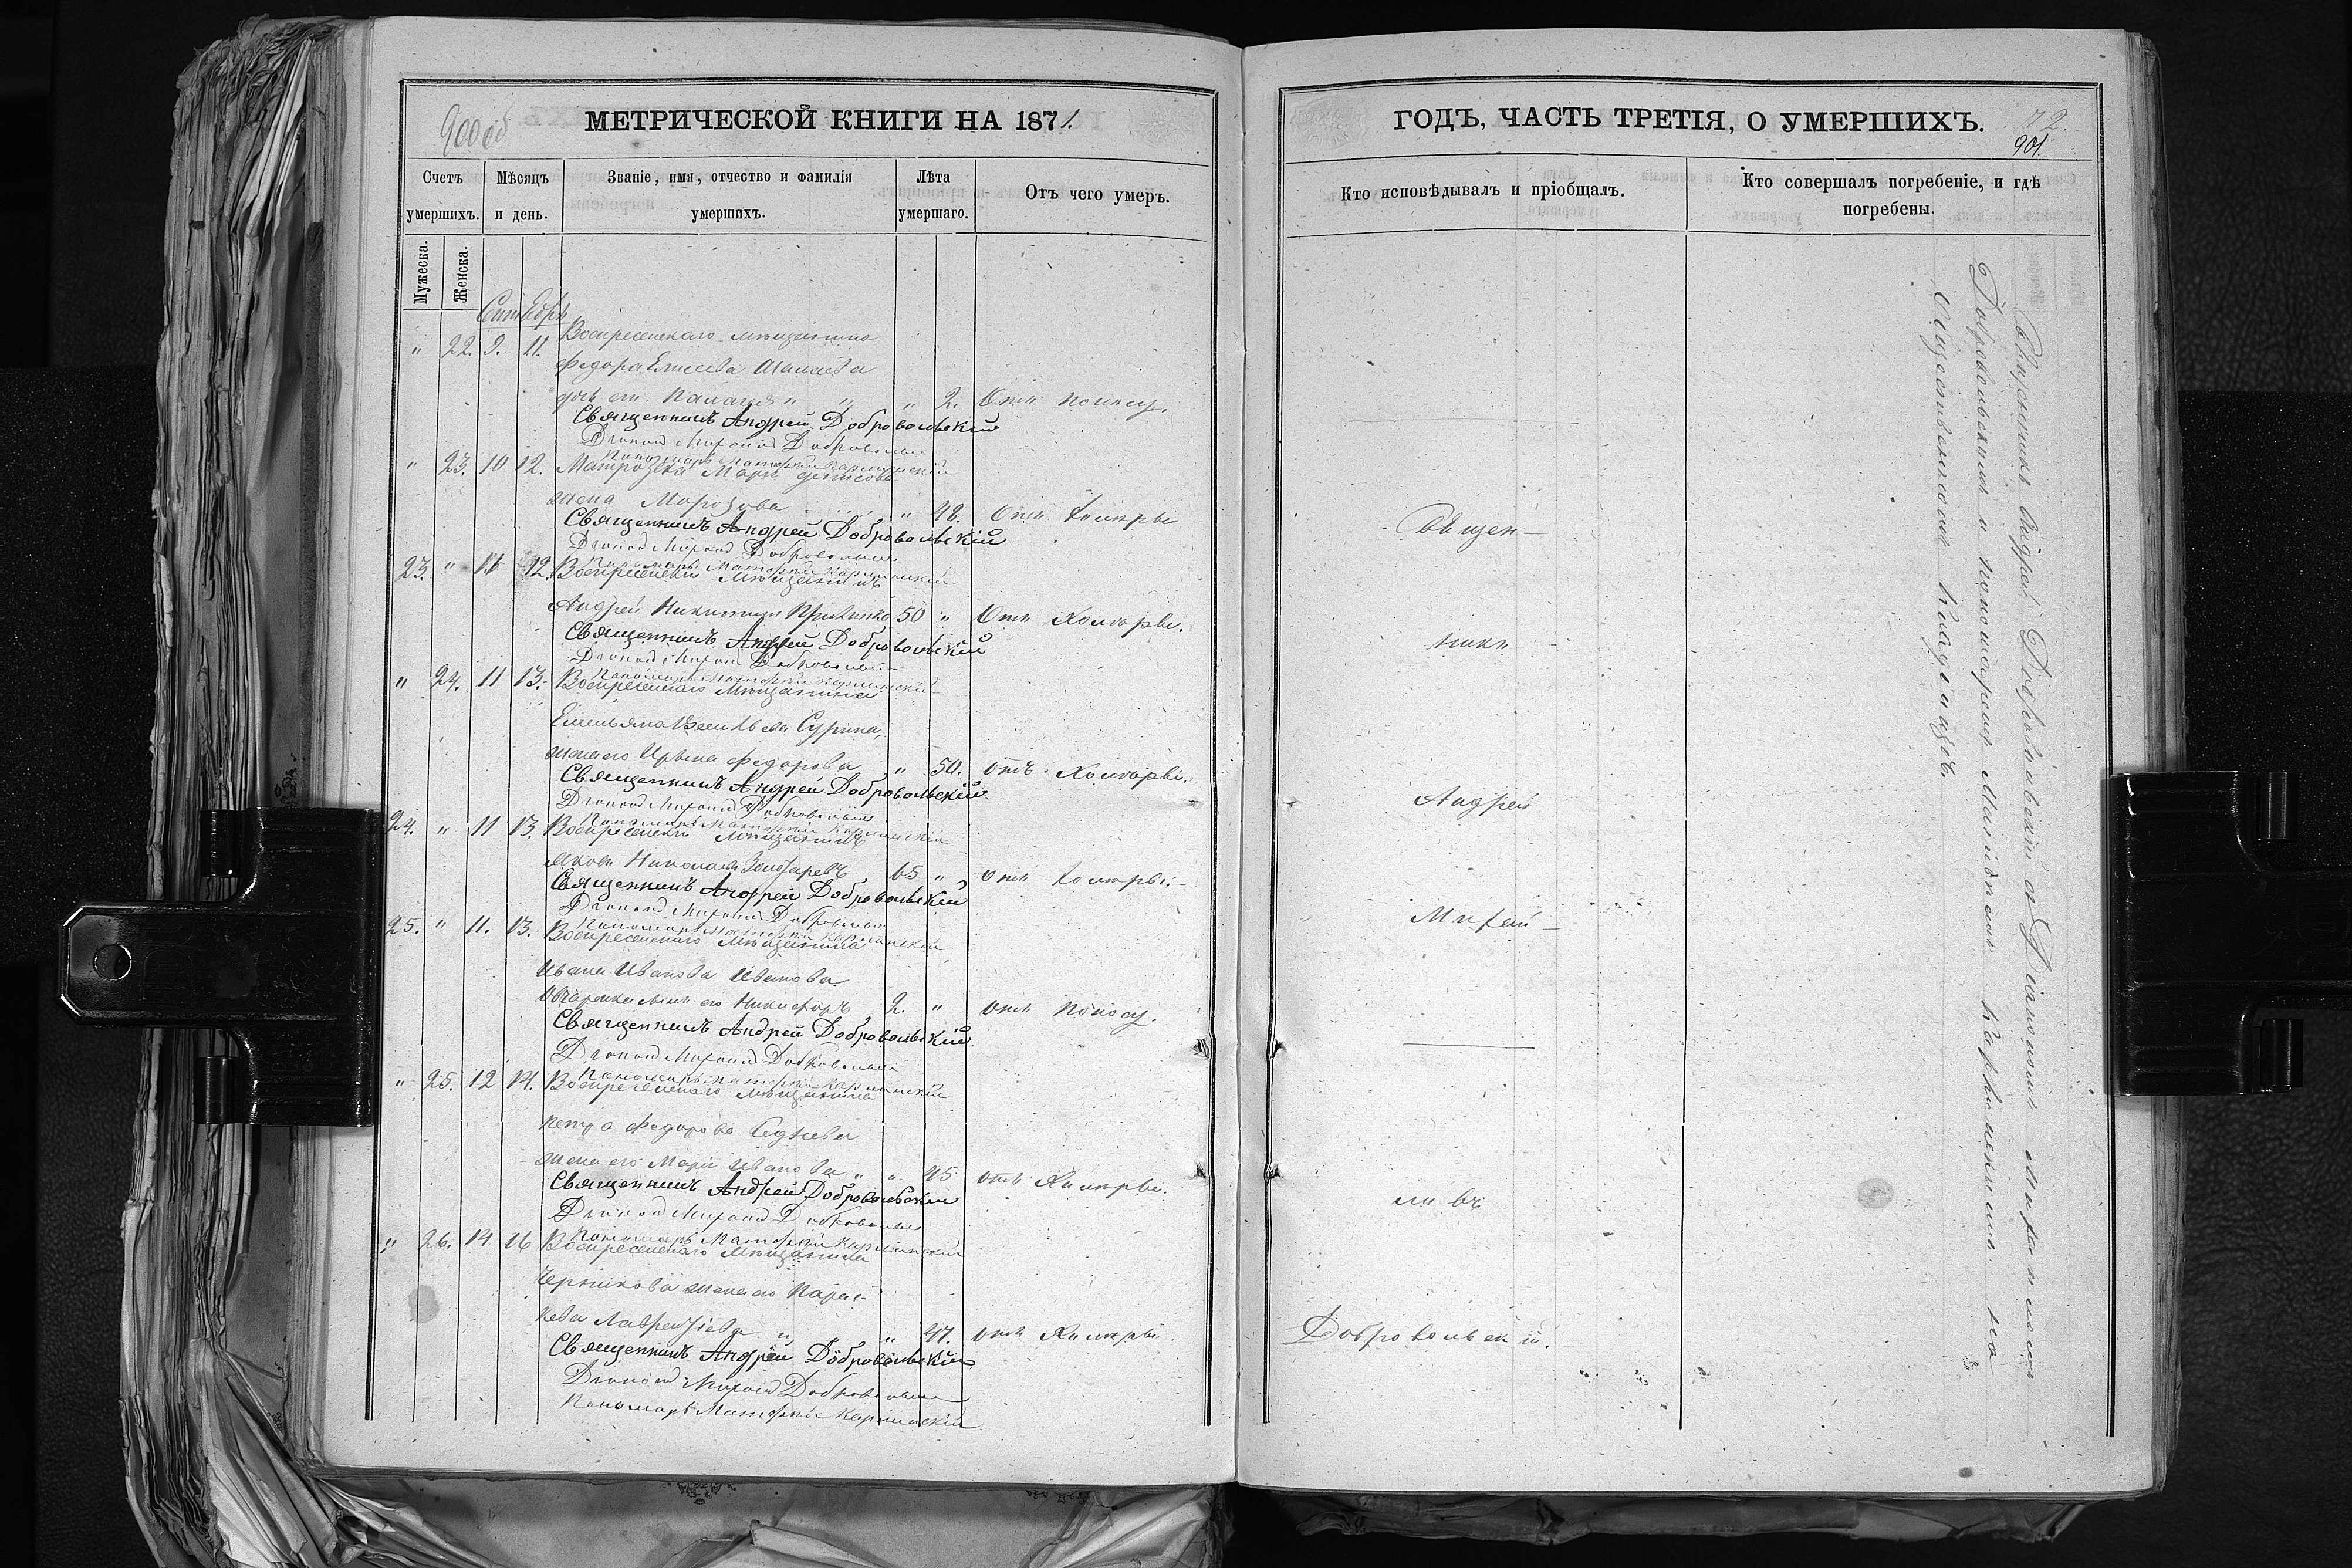 900 об
МЕТРИЧЕСКОЙ КНИГИ НА 1871.
Счетъ умершихъ.
Мѣсяцъ и день.
Званіе, имя, отчество и фамилія умершихъ.
Лѣта умершаго.
Отъ чего умеръ.
Мужеска.
Женска.
Сентябрь
" 22. 9. 11. Воскресенскаго мѣщанина
Федора Елисеева
дочь его Палагея " " " 2. Отъ поносу.
Священникъ Андрей Добровольскій
Діаконъ Михаилъ Добровольскій
Пономарь Матѳей Карпинскій
" 23. 10 12. Матроска Марія Денисова
жена Морозова " 48. Отъ холеры
Священникъ Андрей Добровольскій
Діаконъ Михаилъ Добровольскій
Пономарь Матѳей Карпинскій
23. " 11 12. Воскресенскій мѣщанинъ
Андрей Никитинъ 50 " Отъ холеры.
Священникъ Андрей Добровольскій
Діаконъ Михаилъ Добровольскій
Пономарь Матѳей Карпинскій
" 24. 11 13. Воскресенскаго мѣщанина
Емельяна Сурина,
жена его Ирина Федорова " 50. отъ холеры.
Священникъ Андрей Добровольскій
Діаконъ Михаилъ Добровольскій
Пономарь Матѳей Карпинскій
24. " 11 13. Воскресенскій мѣщанинъ
Яковъ Николаевъ 65 " отъ холеры.
Священникъ Андрей Добровольскій
Діаконъ Михаилъ Добровольскій
Пономарь Матѳей Карпинскій
25. " 11. 13. Воскресенскаго мѣщанина
Ивана Иванова Иванова
сынъ его Никифоръ 2. " отъ поносу.
Священникъ Андрей Добровольскій
Діаконъ Михаилъ Добровольскій
Пономарь Матѳей Карпинскій
" 25. 12 14. Воскресенскаго мѣщанина
Петра Федорова
жена его Марія Иванова " " 45 отъ холеры.
Священникъ Андрей Добровольскій
Діаконъ Михаилъ Добровольскій
Пономарь Матѳей Карпинскій
" 26. 14 16 Воскресенскаго мѣщанина
Черникова жена его Парас-
кева Лаврентіева " " 47. отъ холеры.
Священникъ Андрей Добровольскій
Діаконъ Михаилъ Добровольскій
Пономарь Матѳей Карпинскій
ГОДЪ, ЧАСТЬ ТРЕТІЯ, О УМЕРШИХЪ.
72.
901
Кто исповѣдывалъ и пріобщалъ.
Кто совершалъ погребеніе, и гдѣ погребены.
Священ-
никъ
Андрей
Добровольскій.
Священникъ Андрей Добровольскій съ Діакономъ Михаиломъ
Добровольскимъ и пономаремъ Матѳеемъ Карпинскимъ на
Общественномъ кладбищѣ.